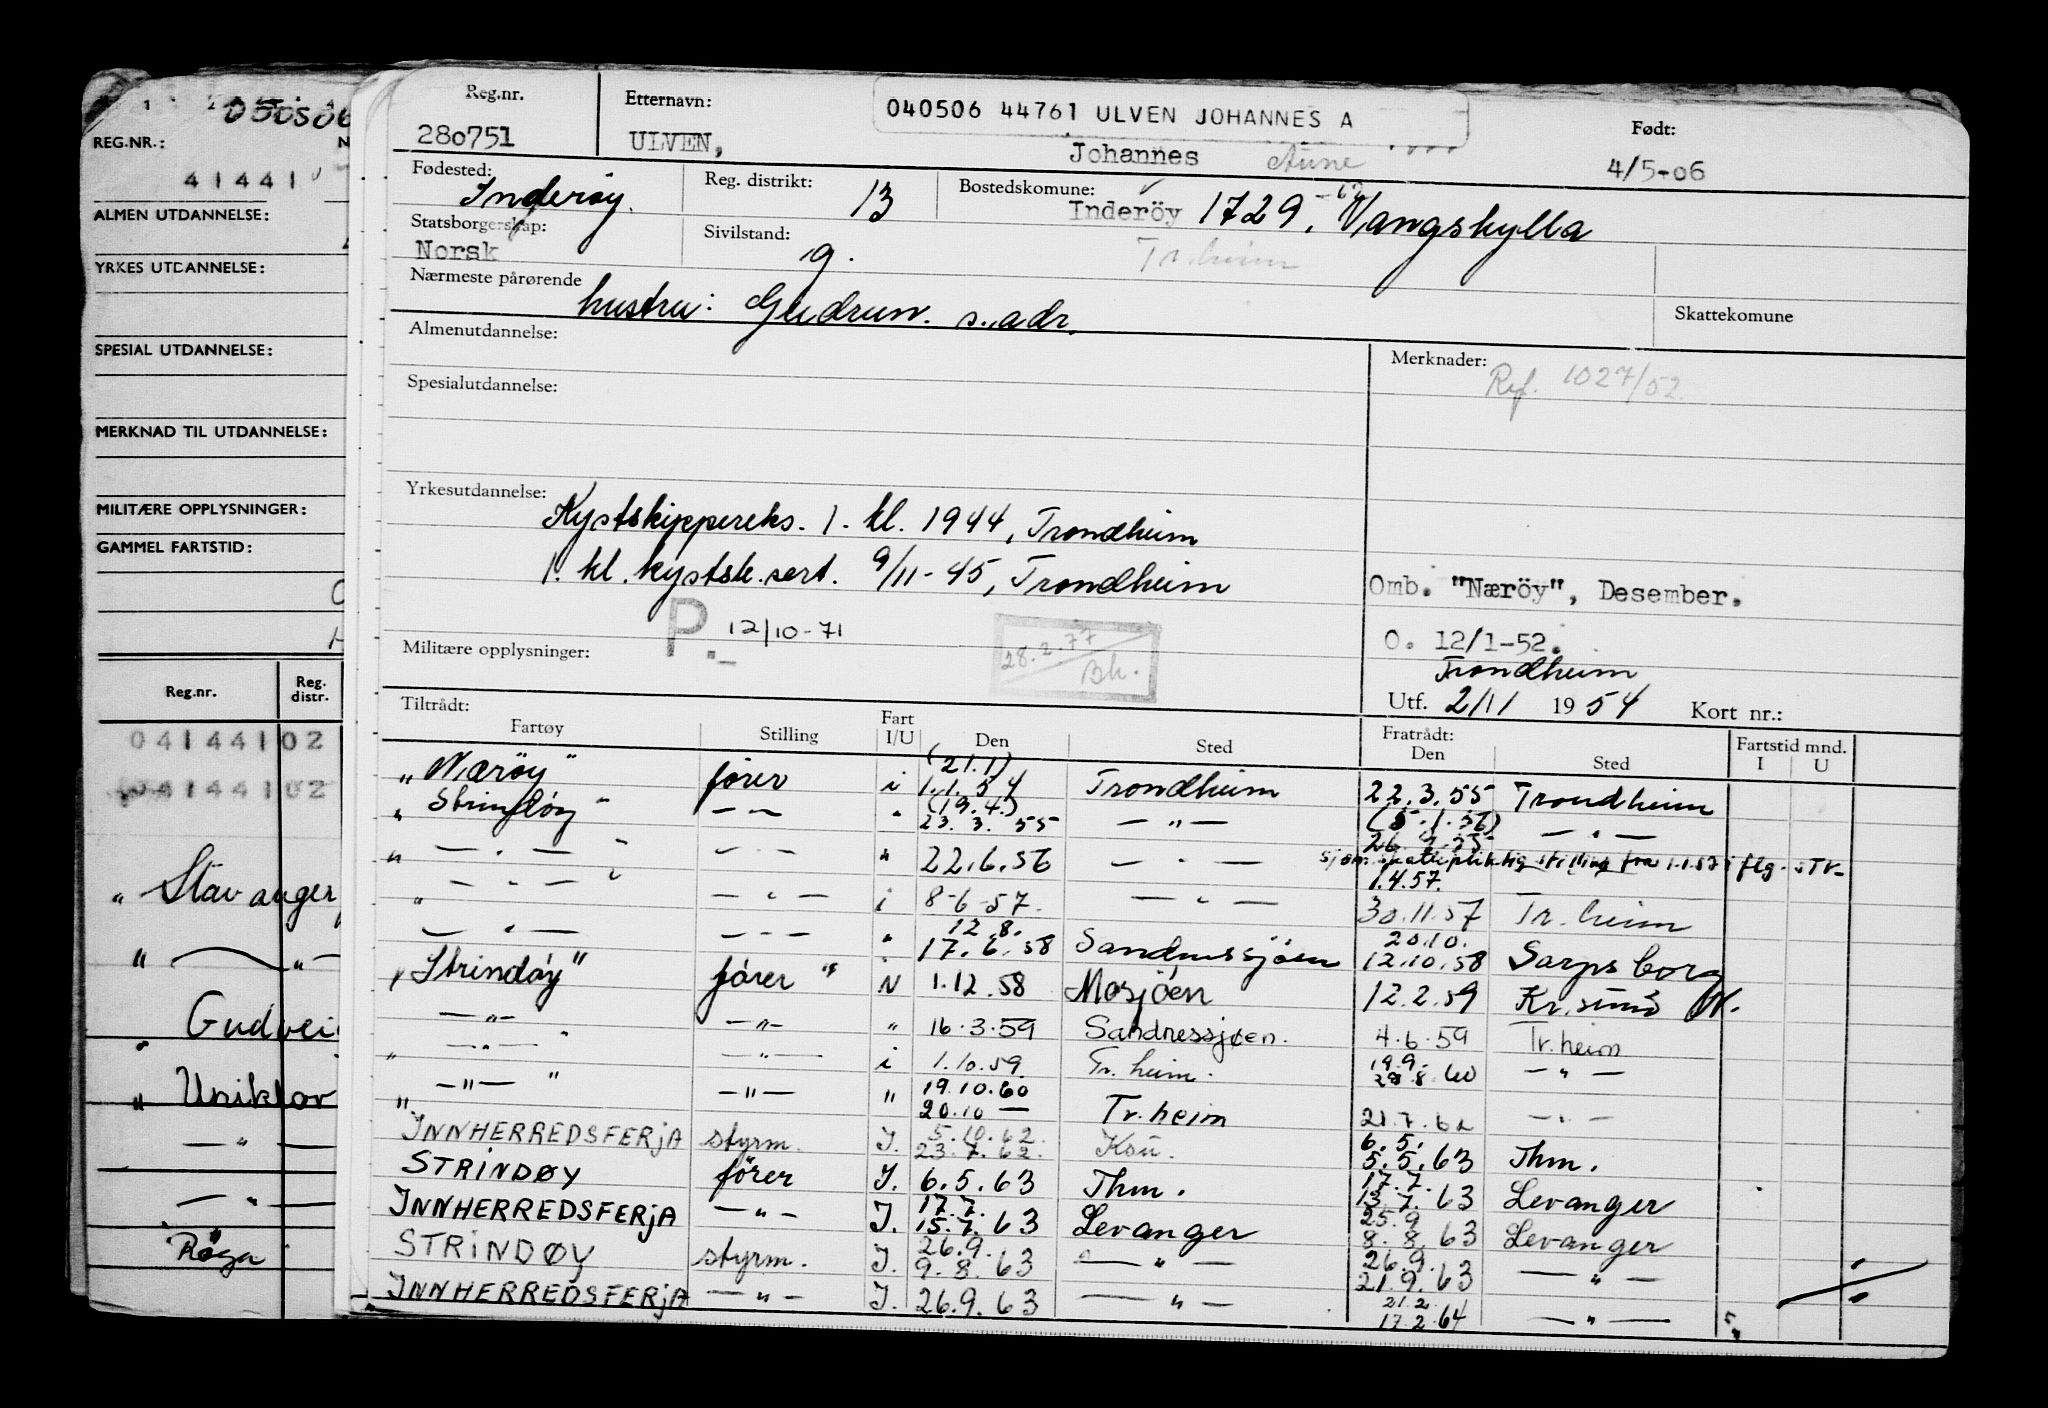 050506
REG.NR.: N
41441
ALMEN UTDANNELSE:
YRKES UTDANNELSE:
SPESIAL UTDANNELSE:
MERKNAD TIL UTDANNELSE:
MILITÆRE OPPLYSNINGER:
GAMMEL FARTSTID:
Reg.nr. Reg. distr.
04144102
04144102
" Stavanger
" — " —
Gudvei
" Uniktor
— " —
— " —
Röga
Reg.nr. Etternavn: 040506 44761 ULVEN JOHANNES A Født:
280751 ULVEN, Johannes Aune 4/5-06
Fødested: Inderöy. Reg. distrikt: 13 Bostedskomune: Inderöy 1729, Vangshylla
Statsborgerskap: Norsk Sivilstand: g. Tr.heim
Nærmeste pårørende hustru: Gudrun. s. adr. Skattekomune
Almenutdannelse: Merknader: Ref. 1027/52.
Spesialutdannelse:
Yrkesutdannelse: Kystskippereks. 1. kl. 1944, Trondheim
1. kl. kystsk. sert. 9/11-45, Trondheim Omb. "Næröy", Desember.
P. 12/10-71 28.2.77 Bh. O. 12/1-52.
Militære opplysninger: Trondheim
Utf. 2/11 1954 Kort nr.:
Tiltrådt: Fratrådt: Fartstid mnd.
Fartøy Stilling Fart I/U Den Sted Den Sted I U
(21.1)
"Næröy" förer i 1.1.54 Trondheim 22.3.55 Trondheim
(19.4.) (5.1.56)
"Strindöy" — — " 23.3.55 — " — — " —
" — " — " — " — " 22.6.56 — " — sjöm.skattepliktig stilling fra 1.1.57 i flg. sTr-
1.4.57.
" — " — " — " — i 8-6-57. — " — 30.11.57 Tr.heim
12.8. 20.10.
— " — — " — " 17.6.58 Sandnessjöen 12.10.58 Sarpsborg
"Strindöy" förer " N 1.12.58 Mosjöen 12.2.59 Kr.sund N.
— " — — " — " 16.3.59 Sandnessjøen. 4.6.59 Tr.heim
19.9.
" — " — " — " — i 1.10.59. Tr.heim. 8.60 — " —
19.10.60
" — " — " — " — " 20.10 — Tr.heim 21.7.62 — " —
5.10.62. 6.5.
INNHERREDSFERJA styrm. I. 23.7.62. Ksu. 5.5.63 Thm.
17.7.
STRINDØY förer I. 6.5.63 Thm. 13.7.63 Levanger
17.7. 25.9
INNHERREDSFERJA — " — I. 15.7.63 Levanger 8.8.63 Levanger
26.9. 26.9.
STRINDØY styrm. I. 9.8.63 — " — 21.9.63 — " —
21.2
INNHERREDSFERJA — " — I. 26.9.63 — " — 17.2.64 — " —